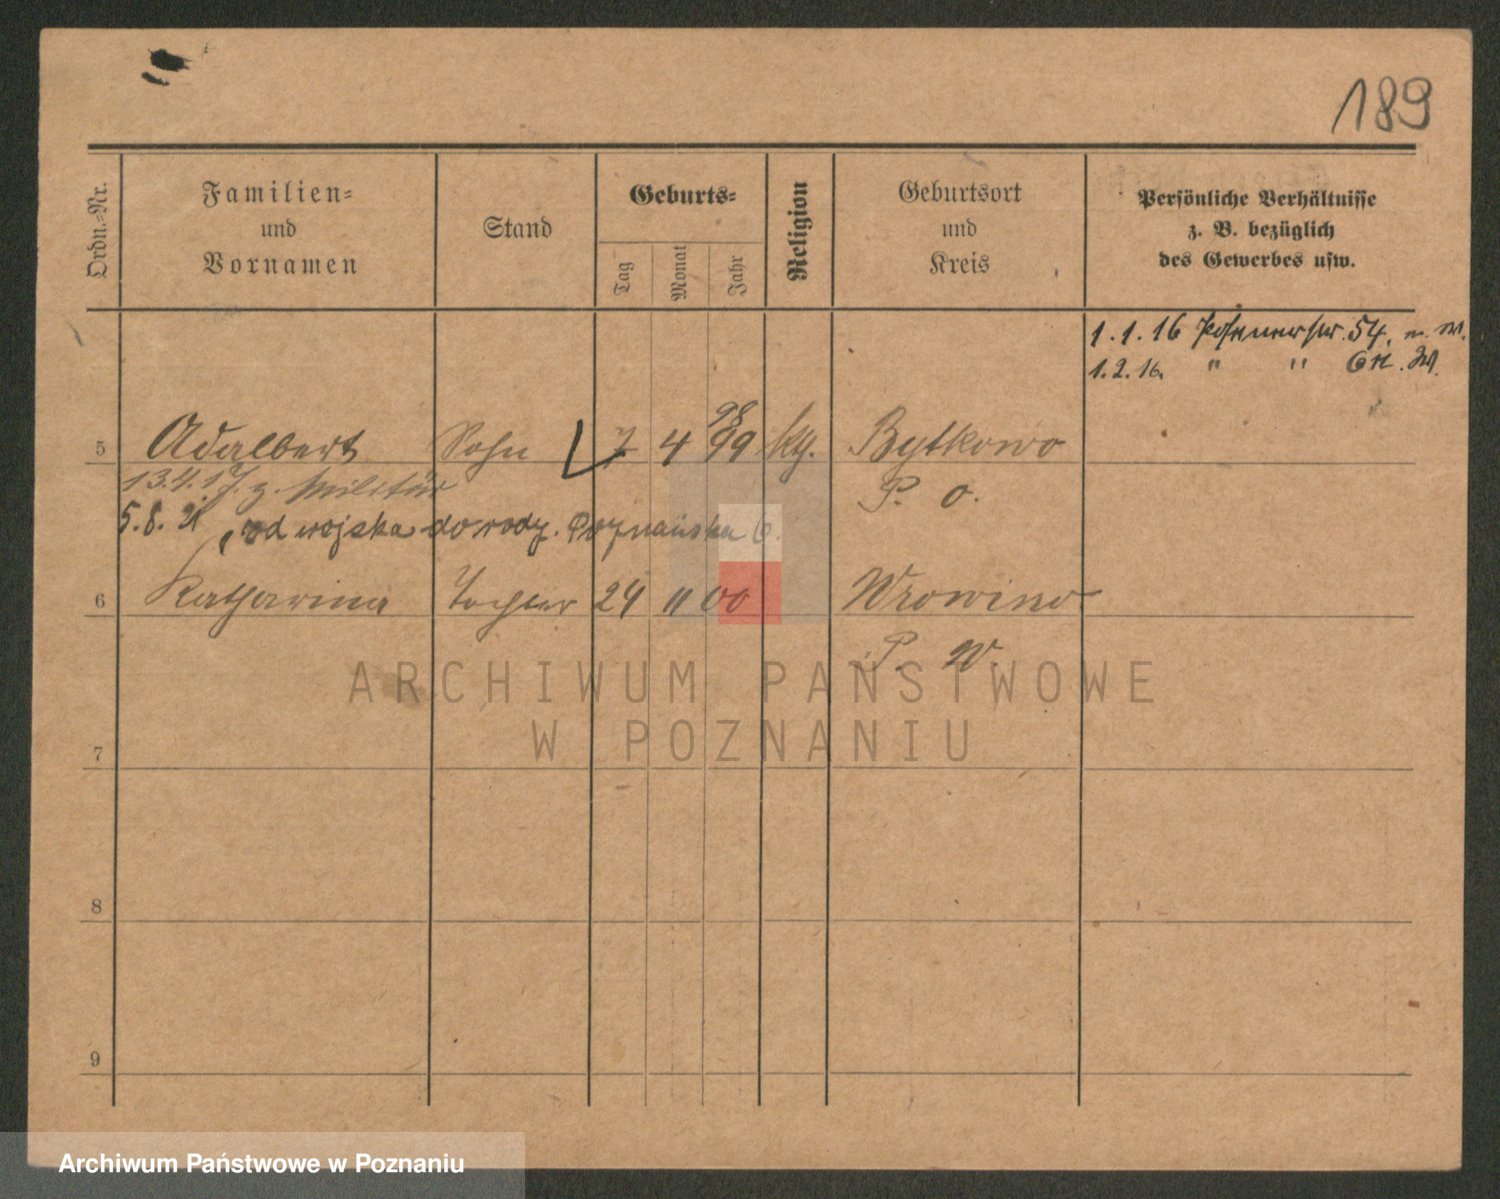 189
Ordn.=Nr.
Familien=
und
Vornamen
Stand
Geburts=
Tag
Monat
Jahr
Religion
Geburtsort
und
Kreis
Persönliche Verhältnisse
z. B. bezüglich
des Gewerbes usw.
1.1.16 Posenerstr. 54.
1.2.16. " " 6
5 Adalbert Sohn 7 4 99 98 ktg. Bytkowo
13.4.17. z. Militär P. O.
5.8.21 od wojska do rodz. Poznańska 6.
6 Katharina Tochter 24 11 00
P. W.
7
8
9
ARCHIWUM PAŃSTWOWE
W POZNANIU
Archiwum Państwowe w Poznaniu